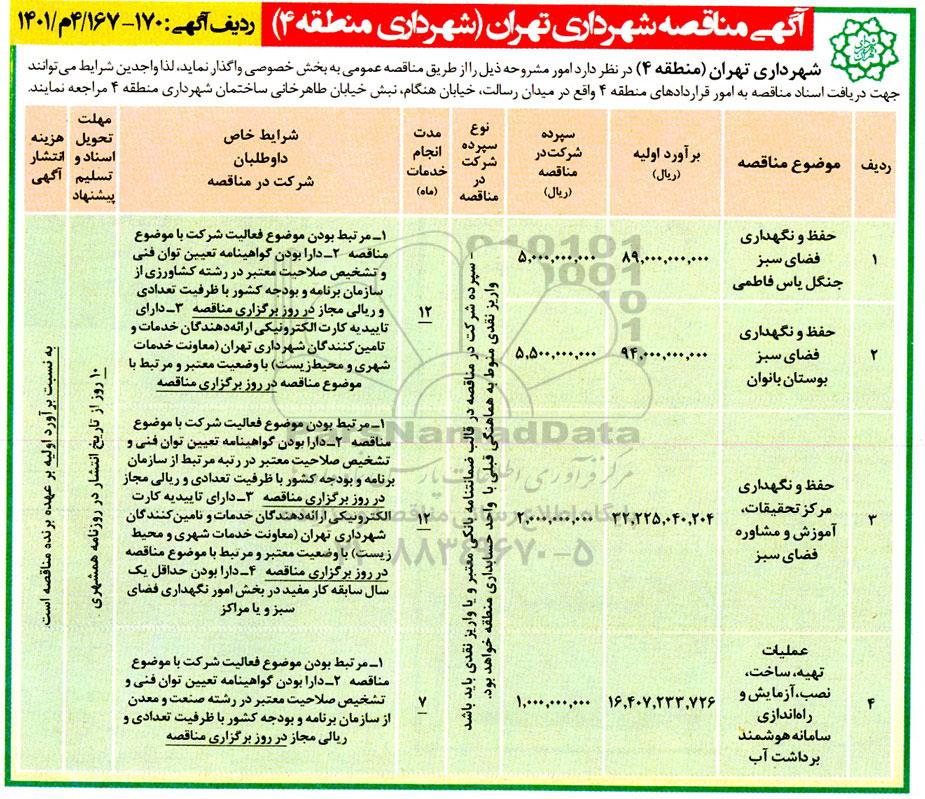 آگهی مناقصه شهرداری تهران (شهرداری منطقه ۴)
ردیف آگهی: ۱۷۰-۴/۱۶۷م/۱۴۰۱
شهرداری تهران (منطقه ۴) در نظر دارد امور مشروحه ذیل را از طریق مناقصه عمومی به بخش خصوصی واگذار نماید، لذا واجدین شرایط می‌توانند
جهت دریافت اسناد مناقصه به امور قراردادهای منطقه ۴ واقع در میدان رسالت، خیابان هنگام، نبش خیابان طاهرخانی ساختمان شهرداری منطقه ۴ مراجعه نمایند.
ردیف
موضوع مناقصه
برآورد اولیه
(ریال)
سپرده
شرکت در
مناقصه
(ریال)
نوع
سپرده
شرکت
در
مناقصه
مدت
انجام
خدمات
(ماه)
شرایط خاص
داوطلبان
شرکت در مناقصه
مهلت
تحویل
اسناد و
تسلیم
پیشنهاد
هزینه
انتشار
آگهی
۱
حفظ و نگهداری
فضای سبز
جنگل یاس فاطمی
۸۹,۰۰۰,۰۰۰,۰۰۰
۵,۰۰۰,۰۰۰,۰۰۰
۲
حفظ و نگهداری
فضای سبز
بوستان بانوان
۹۴,۰۰۰,۰۰۰,۰۰۰
۵,۵۰۰,۰۰۰,۰۰۰
- سپرده شرکت در مناقصه در قالب ضمانتنامه بانکی معتبر و یا واریز نقدی باید باشد
واریز نقدی منوط به هماهنگی قبلی با واحد حسابداری منطقه خواهد بود.
۱۲
۱ـ مرتبط بودن موضوع فعالیت شرکت با موضوع
مناقصه ۲ـ دارا بودن گواهینامه تعیین توان فنی
و تشخیص صلاحیت معتبر در رشته کشاورزی از
سازمان برنامه و بودجه کشور با ظرفیت تعدادی
و ریالی مجاز در روز برگزاری مناقصه ۳ـ دارای
تاییدیه کارت الکترونیکی ارائه‌دهندگان خدمات و
تامین‌کنندگان شهرداری تهران (معاونت خدمات
شهری و محیط‌زیست) با وضعیت معتبر و مرتبط با
موضوع مناقصه در روز برگزاری مناقصه
۱۰ روز از تاریخ انتشار در روزنامه همشهری
به نسبت برآورد اولیه بر عهده برنده مناقصه است.
۳
حفظ و نگهداری
مرکز تحقیقات،
آموزش و مشاوره
فضای سبز
۲۲,۲۲۵,۰۴۰,۲۰۴
۲,۰۰۰,۰۰۰,۰۰۰
۱۲
۱ـ مرتبط بودن موضوع فعالیت شرکت با موضوع
مناقصه ۲ـ دارا بودن گواهینامه تعیین توان فنی و
تشخیص صلاحیت معتبر در رتبه مرتبط از سازمان
برنامه و بودجه کشور با ظرفیت تعدادی و ریالی مجاز
در روز برگزاری مناقصه ۳ـ دارای تاییدیه کارت
الکترونیکی ارائه‌دهندگان خدمات و تامین‌کنندگان
شهرداری تهران (معاونت خدمات شهری و محیط
زیست) با وضعیت معتبر و مرتبط با موضوع مناقصه
در روز برگزاری مناقصه ۴ـ دارا بودن حداقل یک
سال سابقه کار مفید در بخش امور نگهداری فضای
سبز و یا مراکز
۴
عملیات
تهیه، ساخت،
نصب، آزمایش و
راه‌اندازی
سامانه هوشمند
برداشت آب
۱۶,۴۰۷,۲۳۳,۷۲۶
۱,۰۰۰,۰۰۰,۰۰۰
۷
۱ـ مرتبط بودن موضوع فعالیت شرکت با موضوع
مناقصه ۲ـ دارا بودن گواهینامه تعیین توان فنی و
تشخیص صلاحیت معتبر در رشته صنعت و معدن
از سازمان برنامه و بودجه کشور با ظرفیت تعدادی و
ریالی مجاز در روز برگزاری مناقصه